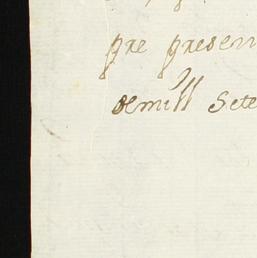 pre presen
demill Sete